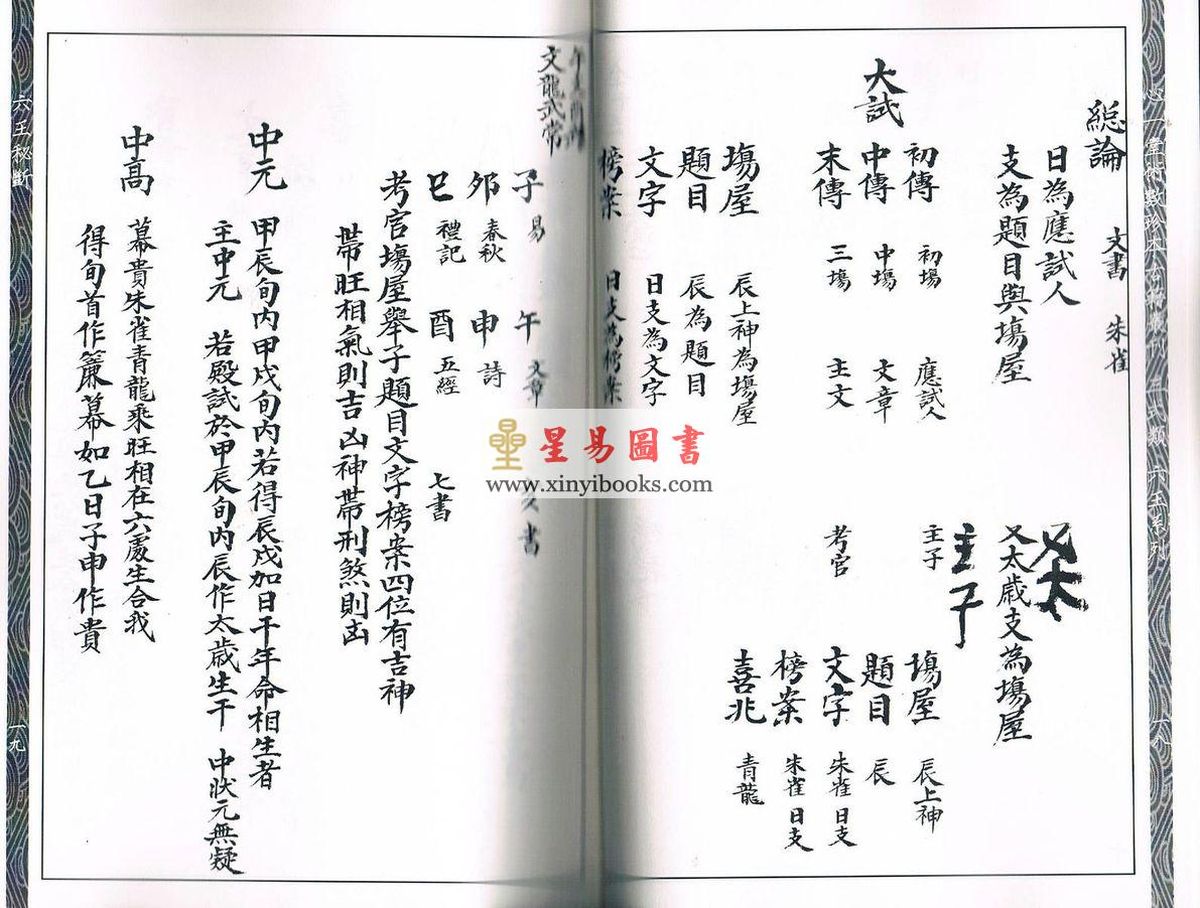 總論
文書 朱雀
日為應試人
支為題目與塲屋
又太歲支為塲屋
又太
主子
大試
初傳 初塲 應試人 主子
中傳 中塲 文章
末傳 三塲 主文 考官
塲屋 辰上神
題目 辰
文字 朱雀日支
榜案 朱雀日支
喜兆 青龍
塲屋 辰上神為塲屋
題目 辰為題目
文字 日支為文字
榜案 日支為榜案
文龍武常
子 易 午 文章 文書
卯 春秋 申 詩
巳 禮記 酉 五經 七書
考官塲屋舉子題目文字榜案四位有吉神
帶旺相氣則吉凶神帶刑煞則凶
中元 甲辰旬內甲戌旬內若得辰戌加日干年命相生者
主中元 若殿試於甲辰旬內辰作太歲生干 中狀元無疑
中高 幕貴朱雀青龍乘旺相在六處生合我
得旬首作簾幕如乙日子申作貴
六壬秘斷
一九
一八
星易圖書
www.xinyibooks.com